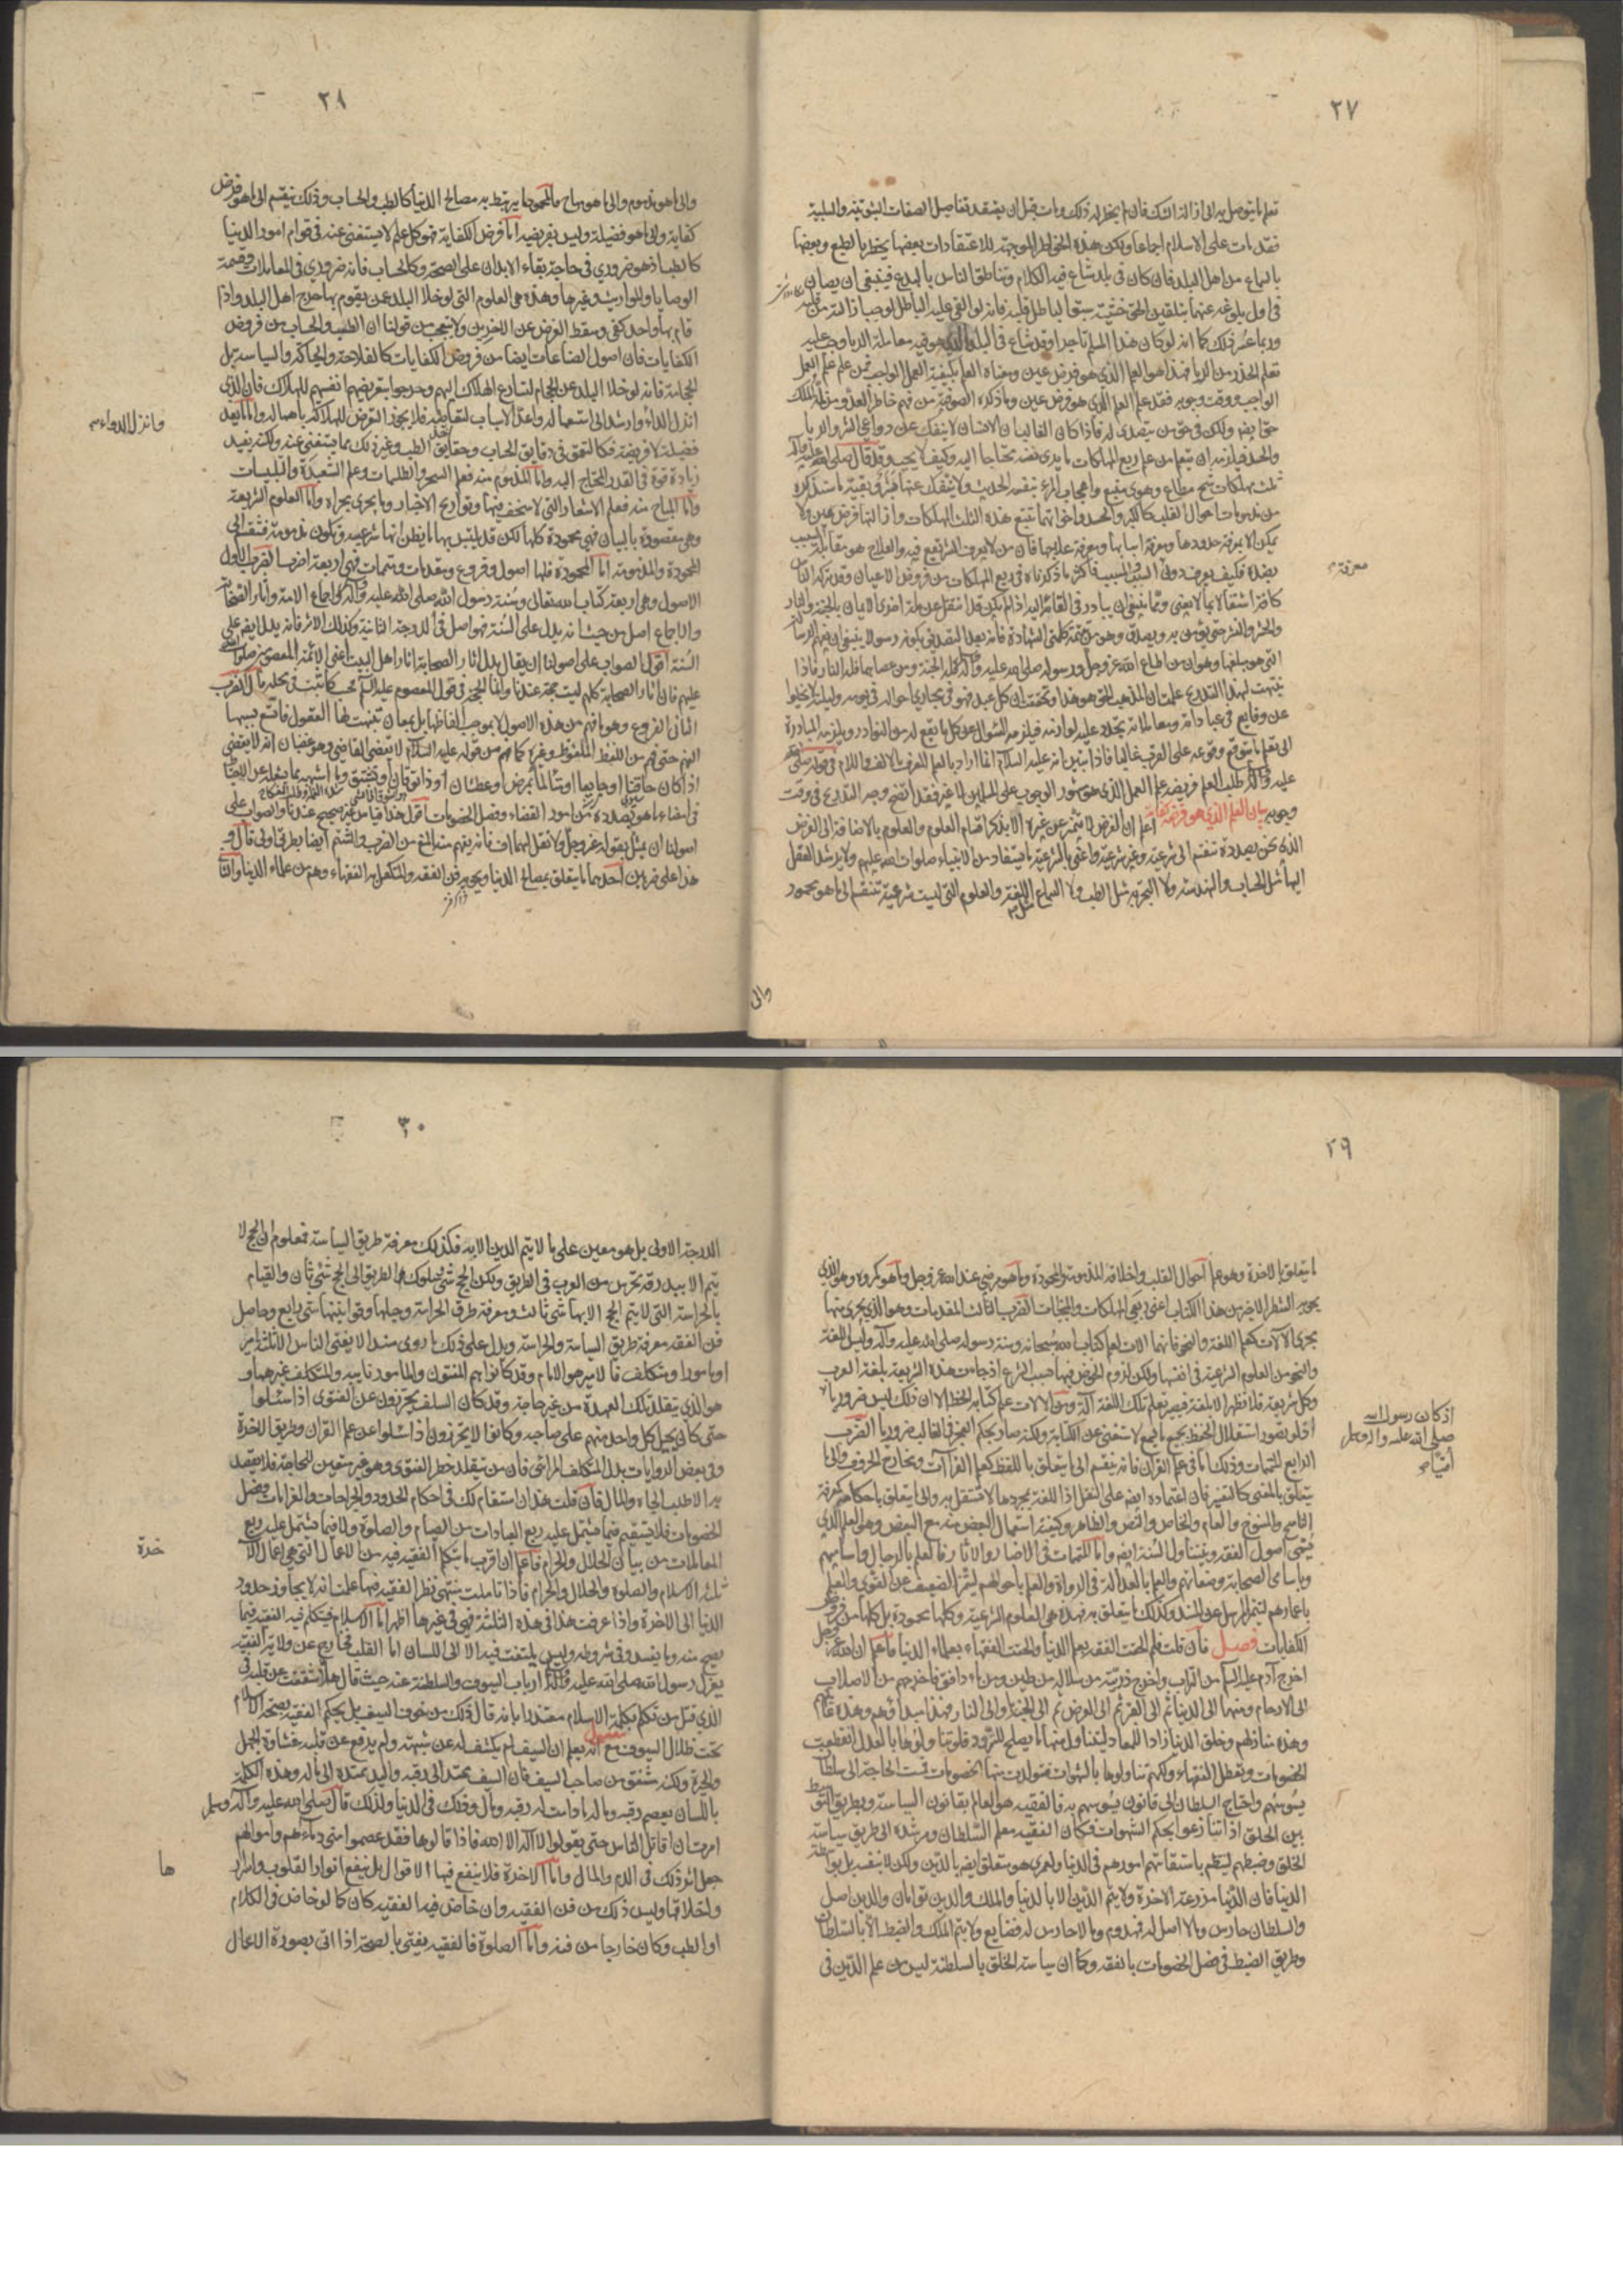 ٢٧
تعلم ما يتوصل به الى ازالة الشك فان لم يخطر له ذلك ومات قبل ان يعتقد تفاصيل الصفات الثبوتية والسلبية
فقد مات على الاسلام اجماعا ولكن هذه الخواطر الموجبة للاعتقادات بعضها يخطر بالطبع وبعضها
بالسماع من اهل البلد فان كان في بلد شاع فيه الكلام وتناطق الناس بالبدع فينبغي ان يصان
في اول بلوغه عنها بتلقين الحق خشية سبق الباطل قلبه فانه لو القي عليه الباطل لوجب ازالته من قلبه
وربما عسر ذلك كما انه لو كان هذا المسلم تاجرا وقد شاع في البلد معاملة الربا وجب عليه
تعلم الحذر من الربا فهذا هو العلم الذي هو فرض عين ومعناه العلم بكيفية العمل الواجب فمن علم علم العمل
الواجب ووقت وجوبه فقد علم العلم الذي هو فرض عين وما ذكره الصوفية من فهم خاطر العدو ولمة الملك
حق ايضا ولكن في حق من يتصدى له فاذا كان الغالب ان الانسان لا ينفك عن دواعي الشر والريا
والحسد فيلزمه ان يتعلم من علم ربع المهلكات ما يرى نفسه محتاجا اليه وكيف لا يجب وقد قال صلى الله عليه وآله
ثلث مهلكات شح مطاع وهوى متبع واعجاب المرء بنفسه الحديث ولا ينفك عنها بشر وبقية ما سنذكره
من مذمومات احوال القلب كالكبر والحسد واخواتهما تتبع هذه الثلث المهلكات وازالتها فرض عين ولا
يمكن الا بمعرفة حدودها ومعرفة اسبابها ومعرفة علاجها فان من لا يعرف الشر يقع فيه والعلاج هو مقابلة السبب
بضده فكيف يعرف دون السبب والمسبب فاكثر ما ذكرناه في ربع المهلكات من فروض الاعيان وقد تركه الناس
كافة اشتغالا بما لا يعني ومما ينبغي ان يبادر في القائه اليه اذا لم يكن قد انتقل عن ملة اخرى الايمان بالجنة والنار
والحشر والنشر حتى يؤمن به ويصدق وهو من تتمة كلمتي الشهادة فانه بعد التصديق بكونه رسولا ينبغي ان يفهم الرسالة
التي هو مبلغها وهو ان من اطاع الله عز وجل ورسوله صلى الله عليه وآله فله الجنة ومن عصاهما فله النار فاذا
تنبهت لهذا التدريج علمت ان المذهب الحق هو هذا وتحققت ان كل عبد فهو في مجاري احواله في يومه وليله لا يخلوا
عن وقايع في عباداته ومعاملاته تجدد عليه لوازمه فيلزمه السؤال عن كل ما يقع له من النوادر ويلزمه المبادرة
الى تعلم ما يتوقع وقوعه على القرب غالبا فاذا تبين انه عليه السلام انما اراد بالعلم المعرف بالالف واللام في قوله صلى الله
عليه وآله طلب العلم فريضة علم العمل الذي هو مشهور الوجوب على المسلمين لا غير فقد اتضح وجه التدريج في وقت
وجوبه بيان العلم الذي هو فرض كفاية اعلم ان الفرض لا يتميز عن غيره الا بذكر اقسام العلوم والعلوم بالاضافة الى الفرض
الذي نحن بصدده تنقسم الى شرعية وغير شرعية واعني بالشرعية ما يستفاد من الانبياء صلوات الله عليهم ولا يرشد العقل
اليها مثل الحساب والهندسة ولا التجربة مثل الطب ولا السماع مثل اللغة والعلوم التي ليست شرعية تنقسم الى ما هو محمود
معرفة
والى
٢٨
والى ما هو مذموم والى ما هو مباح فالمحمود ما يرتبط به مصالح الدنيا كالطب والحساب وذلك ينقسم الى ما هو فرض
كفاية والى ما هو فضيلة وليس بفريضة اما فرض الكفاية فهو كل علم لا يستغنى عنه في قوام امور الدنيا
كالطب اذ هو ضروري في حاجة بقاء الابدان على الصحة وكالحساب فانه ضروري في المعاملات وقسمة
الوصايا والمواريث وغيرها وهذه هي العلوم التي لو خلا البلد عمن يقوم بها حرج اهل البلد واذا
قام بها واحد كفى وسقط الفرض عن الاخرين ولا تتعجب من قولنا ان الطب والحساب من فروض
الكفايات فان اصول الصناعات ايضا من فروض الكفايات كالفلاحة والحياكة والسياسة بل
الحجامة فانه لو خلا البلد عن الحجام لتسارع الهلاك اليهم وحرجوا بتعريضهم انفسهم للهلاك فان الذي
انزل الداء وارشد الى استعماله واعد الاسباب لتعاطيه فلا يجوز التعرض للهلاك باهماله واما ما يعد
فضيلة لا فريضة فكالتعمق في دقايق الحساب وحقايق الطب وغير ذلك مما يستغنى عنه ولكنه يفيد
زيادة قوة في القدر المحتاج اليه واما المذموم منه فعلم السحر والطلسمات وعلم الشعبذة والتلبيسات
واما المباح منه فعلم الاشعار التي لا سخف فيها وتواريخ الاخبار وما يجري مجراه واما العلوم الشرعية
وهي مقصودة بالبيان فهي محمودة كلها لكن قد يلتبس بها ما يظن انها شرعية وتكون مذمومة فتنقسم الى
المحمودة والمذمومة اما المحمودة فلها اصول وفروع ومقدمات ومتممات فهي اربعة اضرب الضرب الاول
الاصول وهي اربعة كتاب الله تعالى وسنة رسول الله صلى الله عليه وآله واجماع الامة وآثار الصحابة
والاجماع اصل من حيث انه يدل على السنة فهو اصل في الدرجة الثانية وكذلك الاثر فانه يدل ايضا على
السنة اقول الصواب على اصولنا ان يقال بدل آثار الصحابة آثار اهل البيت اعني الائمة المعصومين صلوات الله
عليهم فان آثار الصحابة كلهم ليست حجة عندنا وانما الحجة في قول المعصوم عليه السلم كما ثبت في محله قال الضرب
الثاني الفروع وهو ما فهم من هذه الاصول لا بموجب الفاظها بل بمعان تنبهت لها العقول فاتسع بسببها
الفهم حتى فهم من اللفظ الملفوظ وغيره كما فهم من قوله عليه السلام لا يقضي القاضي وهو غضبان انه لا يقضي
اذا كان حاقنا او جايعا او متألما بمرض او عطشان
في امضاء ما هو بصدده من امور القضاء وفصل الخصومات اقول هذا قياس غير صحيح عندنا والصواب على
اصولنا ان يمثل بقوله عز وجل ولا تقل لهما اف فانه يفهم منه المنع من الضرب والشتم ايضا بطريق اولى قال و
هذا على ضربين احدهما ما يتعلق بمصالح الدنيا ويحويه فن الفقه والمتكفل به الفقهاء وهم من علماء الدنيا والثاني
وانزل الدواء
٢٩
ما يتعلق بالاخرة وهو علم احوال القلب واخلاقه المذمومة والمحمودة وما هو مرضي عند الله عز وجل وما هو مكروه وهو الذي
يحويه الشطر الاخير من هذا الكتاب اعني ربعي المهلكات والمنجيات الضرب الثالث المقدمات وهو الذي يجري منها
مجرى الآلات كعلم اللغة والنحو فانهما آلات لعلم كتاب الله سبحانه وسنة رسوله صلى الله عليه وآله وليس اللغة
والنحو من العلوم الشرعية في انفسها ولكن لزم الخوض فيها بسبب الشرع اذ جاءت هذه الشريعة بلغة العرب
وكل شريعة فلا تظهر الا بلغة فيصير تعلم تلك اللغة آلة ومن الآلات علم كتابة الخط الا ان ذلك ليس ضروريا
اذ لو تصور استقلال الحفظ بجميع ما يسمع لاستغنى عن الكتابة ولكنه صار بحكم العجز في الغالب ضروريا الضرب
الرابع المتممات وذلك اما في علم القرآن فانه ينقسم الى ما يتعلق باللفظ كعلم القرآآت ومخارج الحروف والى ما
يتعلق بالمعنى كالتفسير فان اعتماده ايضا على النقل اذ اللغة بمجردها لا تستقل به والى ما يتعلق باحكامه كمعرفة
الناسخ والمنسوخ والعام والخاص والنص والظاهر وكيفية استعمال البعض منه مع البعض وهو العلم الذي
يسمى اصول الفقه ويتناول السنة ايضا واما المتممات في الاخبار والآثار فالعلم بالرجال واساميهم
وباسامي الصحابة وصفاتهم والعلم بالعدالة في الرواة والعلم باحوالهم ليميز الضعيف عن القوي والعلم
باعمارهم ليتميز المرسل عن المسند وكذلك ما يتعلق به فهذه هي العلوم الشرعية وكلها محمودة بل كلها من فروض
الكفايات فصل فان قلت فلم الحقت الفقه بعلم الدنيا والحقت الفقهاء بعلماء الدنيا فاعلم ان الله عز وجل
اخرج آدم عليه السلم من التراب واخرج ذريته من سلالة من طين ومن ماء دافق فاخرجهم من الاصلاب
الى الارحام ومنها الى الدنيا ثم الى القبر ثم الى العرض ثم الى الجنة او الى النار فهذا مبدأهم وهذه غايتهم
وهذه منازلهم وخلق الدنيا زادا للمعاد ليتناول منها ما يصلح للتزود فلو تناولوها بالعدل انقطعت
الخصومات وتعطل الفقهاء ولكنهم تناولوها بالشهوات فتولدت منها الخصومات فمست الحاجة الى سلطان
يسوسهم واحتاج السلطان الى قانون يسوسهم به فالفقيه هو العالم بقانون السياسة وبطريق التوسط
بين الخلق اذا تنازعوا بحكم الشهوات فكان الفقيه معلم السلطان ومرشده الى طريق سياسة
الخلق وضبطهم لينتظم باستقامتهم امورهم في الدنيا ولعمري هو متعلق ايضا بالدين ولكن لا بنفسه بل بواسطة
الدنيا فان الدنيا مزرعة الاخرة ولا يتم الدين الا بالدنيا والملك والدين توأمان والدين اصل
والسلطان حارس وما لا اصل له فمهدوم وما لا حارس له فضايع ولا يتم الملك والضبط الا بالسلطان
وطريق الضبط في فصل الخصومات بالفقه وكما ان سياسة الخلق بالسلطنة ليس من علم الدين في
اذ كان رسول الله
صلى الله عليه وآله وسلم
اميا
٣٠
الدرجة الاولى بل هو معين على ما لا يتم الدين الا به فكذلك معرفة طريق السياسة فمعلوم ان الحج لا
يتم الا ببدرقة تحرس من العرب في الطريق ولكن الحج شئ وسلوك الطريق الى الحج شئ ثان والقيام
بالحراسة التي لا يتم الحج الا بها شئ ثالث ومعرفة طرق الحراسة وحيلها وقوانينها شئ رابع وحاصل
فن الفقه معرفة طريق السياسة والحراسة ويدل على ذلك ما روي مسندا لا يفتي الناس الا ثلثة امير
او مأمور او متكلف فالامير هو الامام وقد كانوا هم المفتون والمأمور نايبه والمتكلف غيرهما و
هو الذي يتقلد تلك العهدة من غير حاجة وقد كان السلف يحترزون عن الفتوى اذا سئلوا
حتى كان يحيل كل واحد منهم على صاحبه وكانوا لا يحترزون اذا سئلوا عن علم القرآن وطريق الاخرة
وفي بعض الروايات بدل المتكلف المرائي فان من تقلد خطر الفتوى وهو غير متعين للحاجة فلا يقصد
به الا طلب الجاه والمال فان قلت هذا ان استقام لك في احكام الحدود والجراحات والغرامات وفصل
الخصومات فلا يستقيم فيما يشتمل عليه ربع العبادات من الصيام والصلوة ولا فيما يشتمل عليه ربع
المعاملات من بيان الحلال والحرام فاعلم ان اقرب ما يتكلم الفقيه فيه من الاعمال التي هي اعمال الآ
ثلثة الاسلام والصلوة والحلال والحرام فاذا تأملت منتهى نظر الفقيه فيها علمت انه لا يجاوز حدود
الدنيا الى الاخرة واذا عرفت هذا في هذه الثلثة فهي في غيرها اظهر اما الاسلام فيتكلم فيه الفقيه فيما
يصح منه وما يفسد وفي شروطه وليس يلتفت فيه الا الى اللسان اما القلب فخارج عن ولاية الفقيه
بعزل رسول الله صلى الله عليه وآله ارباب السيوف والسلطنة عنه حيث قال هلا شققت عن قلبه في
الذي قتل من تكلم بكلمة الاسلام معتذرا بانه قال ذلك من خوف السيف بل يحكم الفقيه بصحة الاسلام
تحت ظلال السيوف مع انه يعلم ان السيف لم يكشف له عن شبهة ولم يرفع عن قلبه غشاوة الجهل
والحيرة ولكنه مشفق من صاحب السيف فان السيف ممتد الى رقبته واليد ممتدة الى ماله وهذه الكلمة
باللسان يعصم رقبته وماله ما دامت له رقبة ومال وذلك في الدنيا ولذلك قال صلى الله عليه وآله وسلم
امرت ان اقاتل الناس حتى يقولوا لا اله الا الله فاذا قالوها فقد عصموا مني دماءهم واموالهم
جعل اثر ذلك في الدم والمال واما الاخرة فلا ينفع فيها الاقوال بل ينفع انوار القلوب واسرار
واخلاقها وليس ذلك من فن الفقيه وان خاض فيه الفقيه كان كما لو خاض في الكلام
او الطب وكان خارجا من فنه واما الصلوة فالفقيه يفتي بالصحة اذا اتى بصورة الاعمال
خرة
ها